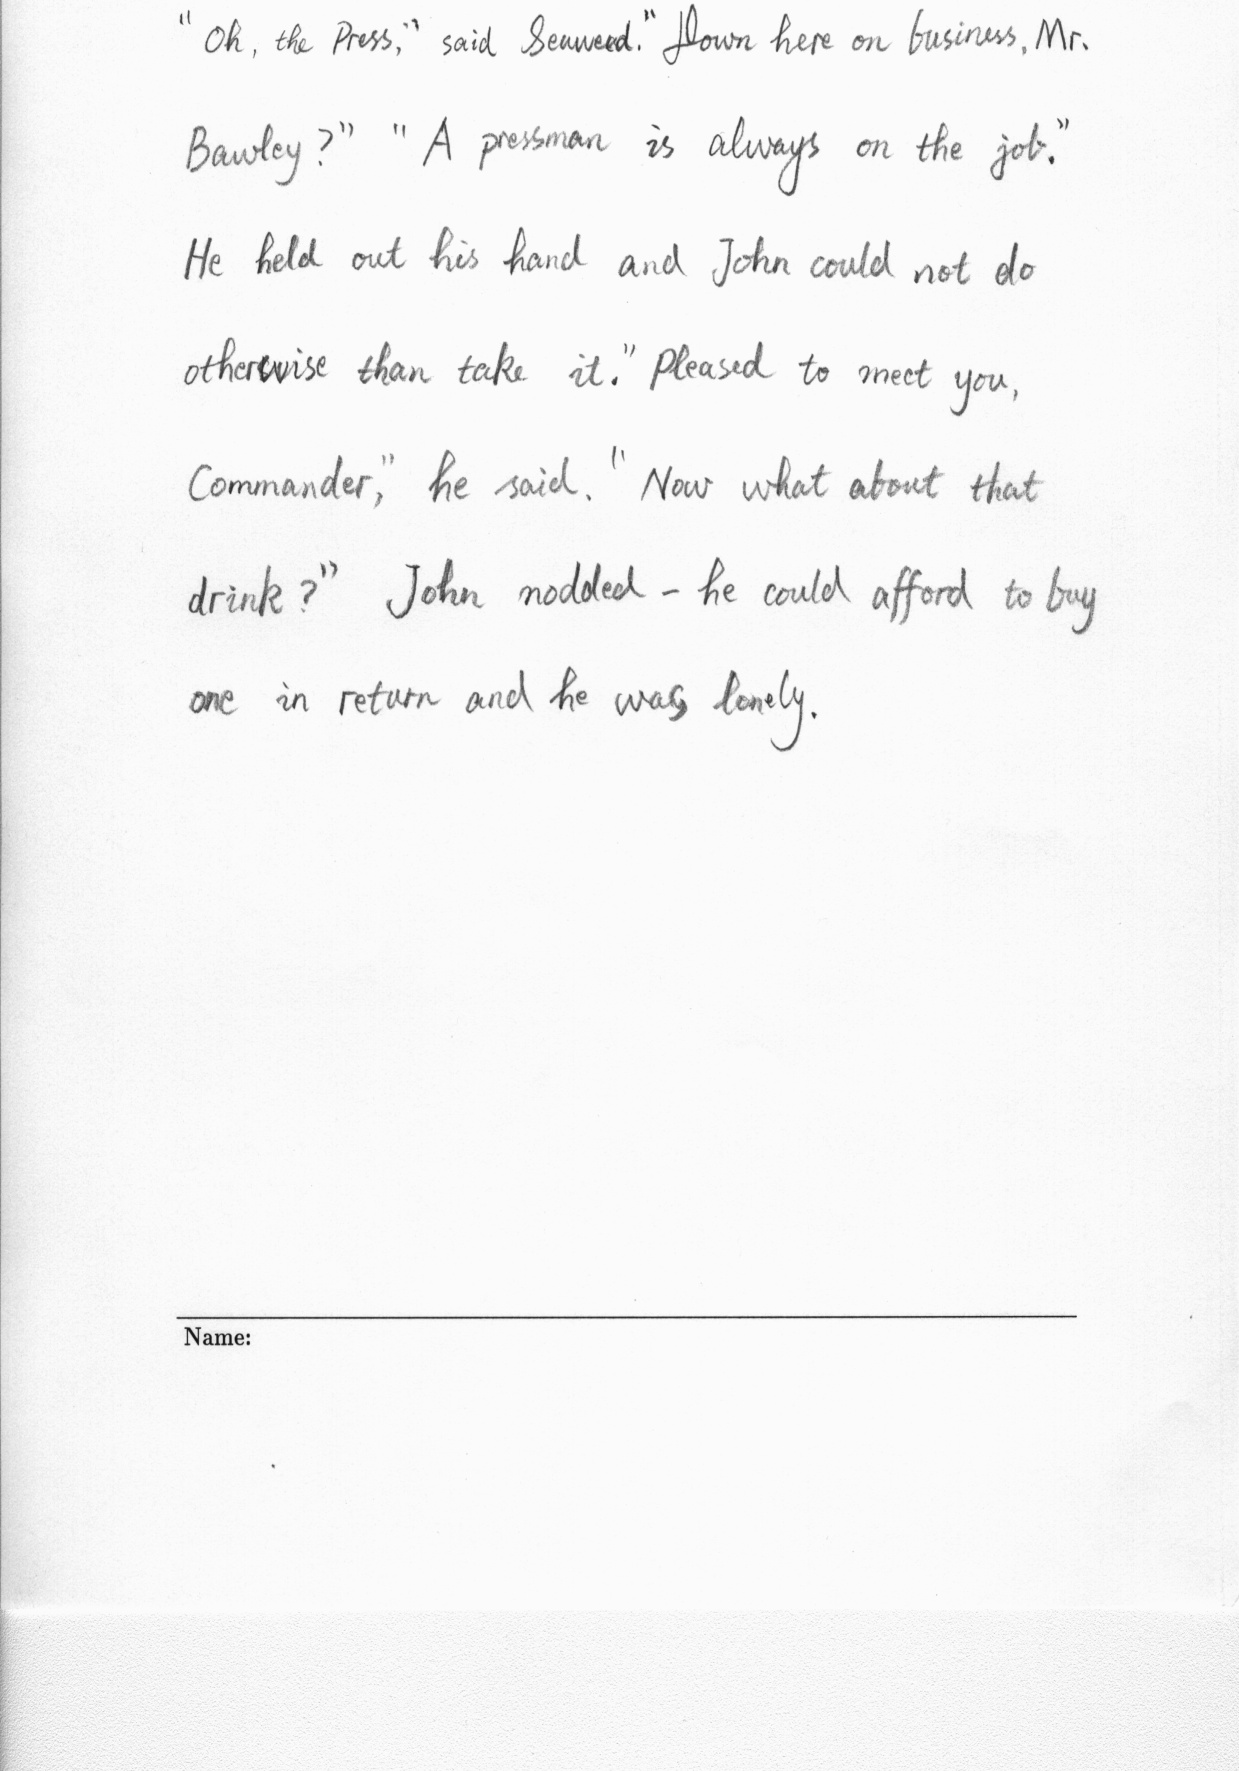 "Oh, the Press," said Seaweed." Down here on business, Mr.
Bawley?" "A pressman is always on the job."
He held out his hand and John could not do
otherwise than take it." Pleased to meet you,
Commander," he said. "Now what about that
drink?" John nodded - he could afford to buy
one in return and he was lonely.
Name: